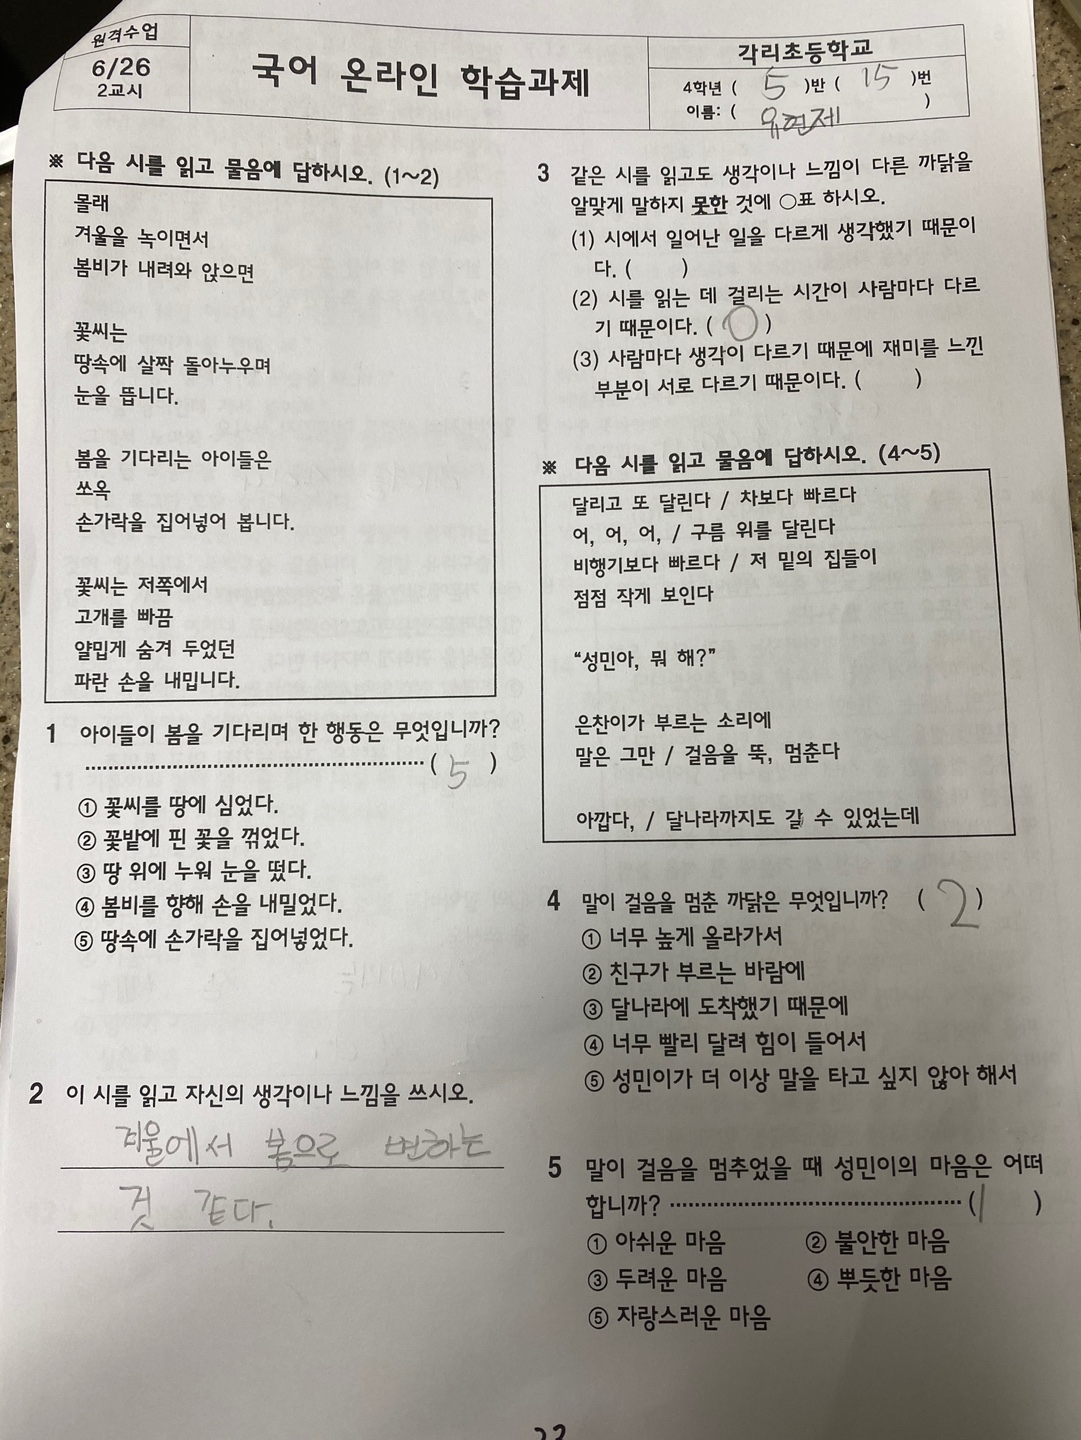 원격수업
6/26
2교시
국어 온라인 학습과제
각리초등학교
4학년 ( 5 )반 ( 15 )번
이름: ( 유현제 )
※ 다음 시를 읽고 물음에 답하시오. (1~2)
몰래
겨울을 녹이면서
봄비가 내려와 앉으면
꽃씨는
땅속에 살짝 돌아누우며
눈을 뜹니다.
봄을 기다리는 아이들은
쏘옥
손가락을 집어넣어 봅니다.
꽃씨는 저쪽에서
고개를 빠끔
얄밉게 숨겨 두었던
파란 손을 내밉니다.
1 아이들이 봄을 기다리며 한 행동은 무엇입니까?
( 5 )
① 꽃씨를 땅에 심었다.
② 꽃밭에 핀 꽃을 꺾었다.
③ 땅 위에 누워 눈을 떴다.
④ 봄비를 향해 손을 내밀었다.
⑤ 땅속에 손가락을 집어넣었다.
2 이 시를 읽고 자신의 생각이나 느낌을 쓰시오.
겨울에서 봄으로 변하는
것 같다.
3 같은 시를 읽고도 생각이나 느낌이 다른 까닭을
알맞게 말하지 못한 것에 ○표 하시오.
(1) 시에서 일어난 일을 다르게 생각했기 때문이
다. ( )
(2) 시를 읽는 데 걸리는 시간이 사람마다 다르
기 때문이다. ( ○ )
(3) 사람마다 생각이 다르기 때문에 재미를 느낀
부분이 서로 다르기 때문이다. ( )
※ 다음 시를 읽고 물음에 답하시오. (4~5)
달리고 또 달린다 / 차보다 빠르다
어, 어, 어, / 구름 위를 달린다
비행기보다 빠르다 / 저 밑의 집들이
점점 작게 보인다
“성민아, 뭐 해?”
은찬이가 부르는 소리에
말은 그만 / 걸음을 뚝, 멈춘다
아깝다, / 달나라까지도 갈 수 있었는데
4 말이 걸음을 멈춘 까닭은 무엇입니까? ( 2 )
① 너무 높게 올라가서
② 친구가 부르는 바람에
③ 달나라에 도착했기 때문에
④ 너무 빨리 달려 힘이 들어서
⑤ 성민이가 더 이상 말을 타고 싶지 않아 해서
5 말이 걸음을 멈추었을 때 성민이의 마음은 어떠
합니까? ( 1 )
① 아쉬운 마음 ② 불안한 마음
③ 두려운 마음 ④ 뿌듯한 마음
⑤ 자랑스러운 마음